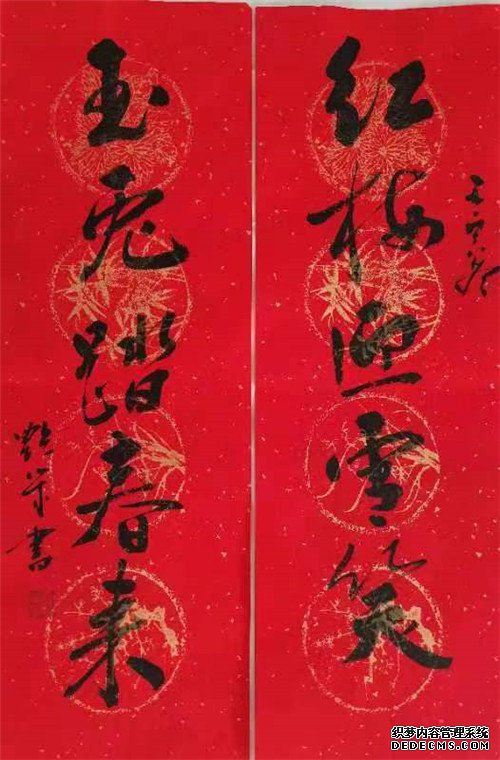 红梅迎雪笑
玉兔踏春来
书
织梦内容管理系统
DEDECMS.COM